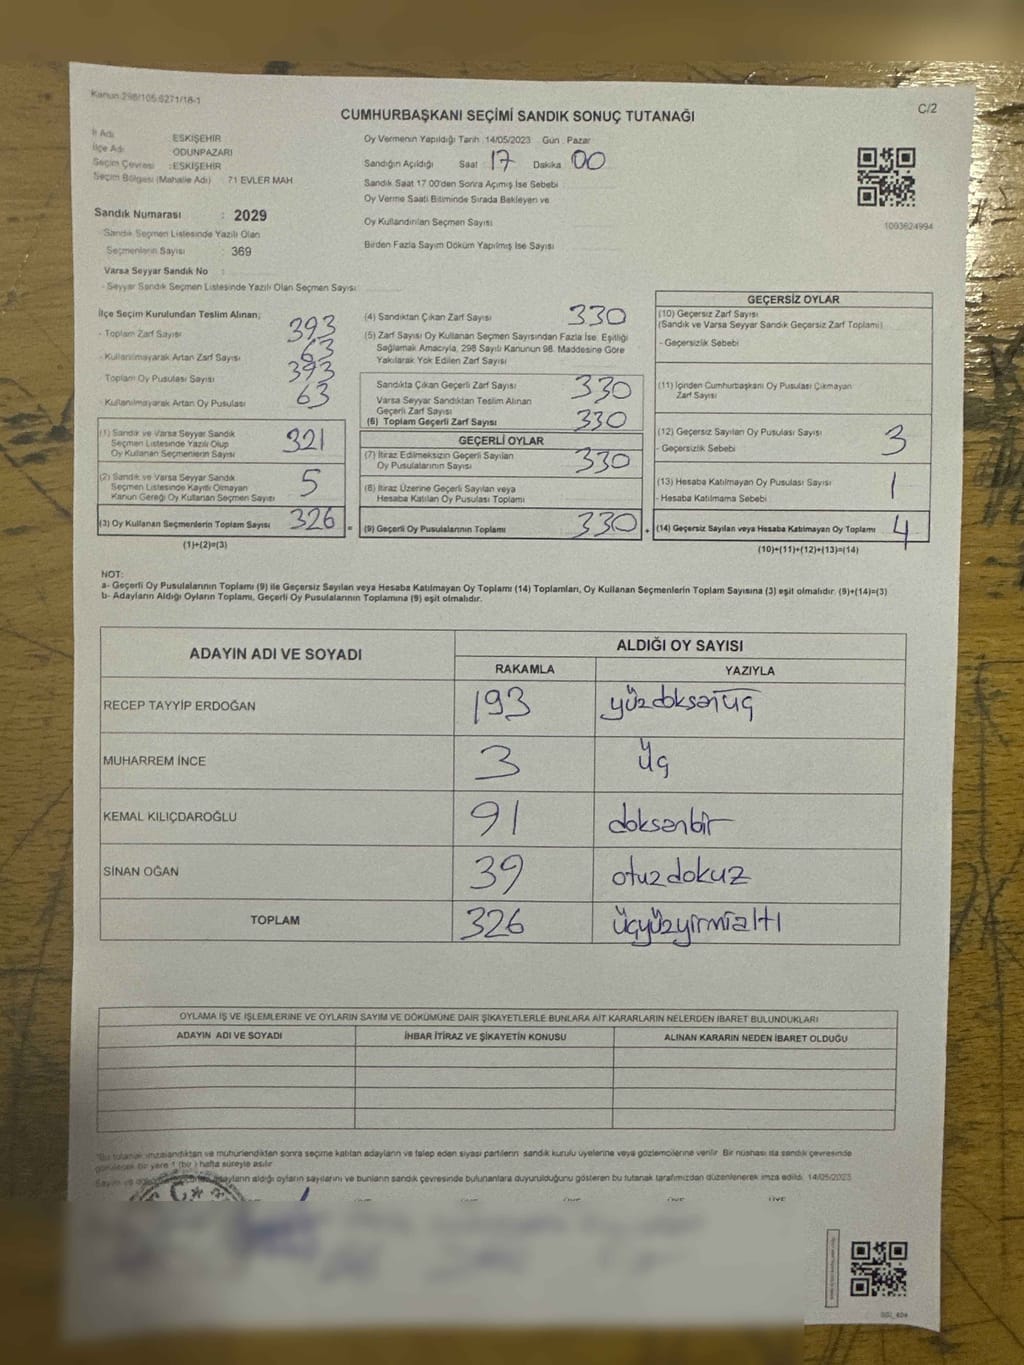 Kanun 298/105.6271/18-1
C/2
CUMHURBAŞKANI SEÇİMİ SANDIK SONUÇ TUTANAĞI
İl Adı ESKİŞEHİR
İlçe Adı : ODUNPAZARI
Seçim Çevresi : ESKİŞEHİR
Seçim Bölgesi (Mahalle Adı) : 71 EVLER MAH
Sandık Numarası : 2029
Sandık Seçmen Listesinde Yazılı Olan
Seçmenlerin Sayısı : 369
Varsa Seyyar Sandık No :
- Seyyar Sandık Seçmen Listesinde Yazılı Olan Seçmen Sayısı
Oy Vermenin Yapıldığı Tarih 14/05/2023 Gün Pazar
Sandığın Açıldığı Saat 17 Dakika 00
Sandık Saat 17 00'den Sonra Açımış İse Sebebi
Oy Verme Saati Bitiminde Sırada Bekleyen ve
Oy Kullandırılan Seçmen Sayısı
Birden Fazla Sayım Döküm Yapılmış İse Sayısı
1093624994
İlçe Seçim Kurulundan Teslim Alınan;
- Toplam Zarf Sayısı 393
- Kullanılmayarak Artan Zarf Sayısı 63
- Toplam Oy Pusulası Sayısı 393
- Kullanılmayarak Artan Oy Pusulası 63
(1) Sandık ve Varsa Seyyar Sandık
Seçmen Listesinde Yazılı Olup
Oy Kullanan Seçmenlerin Sayısı 321
(2) Sandık ve Varsa Seyyar Sandık
Seçmen Listesinde Kayıtlı Olmayan
Kanun Gereği Oy Kullanan Seçmen Sayısı 5
(3) Oy Kullanan Seçmenlerin Toplam Sayısı 326 =
(1)+(2)=(3)
(4) Sandıktan Çıkan Zarf Sayısı 330
(5) Zarf Sayısı Oy Kullanan Seçmen Sayısından Fazla İse, Eşitliği
Sağlamak Amacıyla, 298 Sayılı Kanunun 98. Maddesine Göre
Yakılarak Yok Edilen Zarf Sayısı
Sandıkta Çıkan Geçerli Zarf Sayısı 330
Varsa Seyyar Sandıktan Teslim Alınan
Geçerli Zarf Sayısı
(6) Toplam Geçerli Zarf Sayısı 330
GEÇERLİ OYLAR
(7) İtiraz Edilmeksizin Geçerli Sayılan
Oy Pusulalarının Sayısı 330
(8) İtiraz Üzerine Geçerli Sayılan veya
Hesaba Katılan Oy Pusulası Toplamı
(9) Geçerli Oy Pusulalarının Toplamı 330 +
GEÇERSİZ OYLAR
(10) Geçersiz Zarf Sayısı
(Sandık ve Varsa Seyyar Sandık Geçersiz Zarf Toplamı)
- Geçersizlik Sebebi
(11) İçinden Cumhurbaşkanı Oy Pusulası Çıkmayan
Zarf Sayısı
(12) Geçersiz Sayılan Oy Pusulası Sayısı 3
- Geçersizlik Sebebi
(13) Hesaba Katılmayan Oy Pusulası Sayısı 1
- Hesaba Katılmama Sebebi
(14) Geçersiz Sayılan veya Hesaba Katılmayan Oy Toplamı 4
(10)+(11)+(12)+(13)=(14)
NOT:
a- Geçerli Oy Pusulalarının Toplamı (9) ile Geçersiz Sayılan veya Hesaba Katılmayan Oy Toplamı (14) Toplamları, Oy Kullanan Seçmenlerin Toplam Sayısına (3) eşit olmalıdır. (9)+(14)=(3)
b- Adayların Aldığı Oyların Toplamı, Geçerli Oy Pusulalarının Toplamına (9) eşit olmalıdır.
ADAYIN ADI VE SOYADI
ALDIĞI OY SAYISI
RAKAMLA YAZIYLA
RECEP TAYYİP ERDOĞAN 193 yüzdoksanüç
MUHARREM İNCE 3 üç
KEMAL KILIÇDAROĞLU 91 doksanbir
SİNAN OĞAN 39 otuzdokuz
TOPLAM 326 üçyüzyirmialtı
OYLAMA İŞ VE İŞLEMLERİNE VE OYLARIN SAYIM VE DÖKÜMÜNE DAİR ŞİKAYETLERLE BUNLARA AİT KARARLARIN NELERDEN İBARET BULUNDUKLARI
ADAYIN ADI VE SOYADI İHBAR İTİRAZ VE ŞİKAYETİN KONUSU ALINAN KARARIN NEDEN İBARET OLDUĞU
"Bu tutanak imzalandıktan ve mühürlendikten sonra seçime katılan adayların ve talep eden siyasi partilerin sandık kurulu üyelerine veya gözlemcilerine verilir. Bir nüshası da sandık çevresinde
görülecek bir yere 1 (bir) hafta süreyle asılır.
Sayım ve adayların aldığı oyların sayılarını ve bunların sandık çevresinde bulunanlara duyurulduğunu gösteren bu tutanak tarafımızdan düzenlenerek imza edildi. 14/05/2023